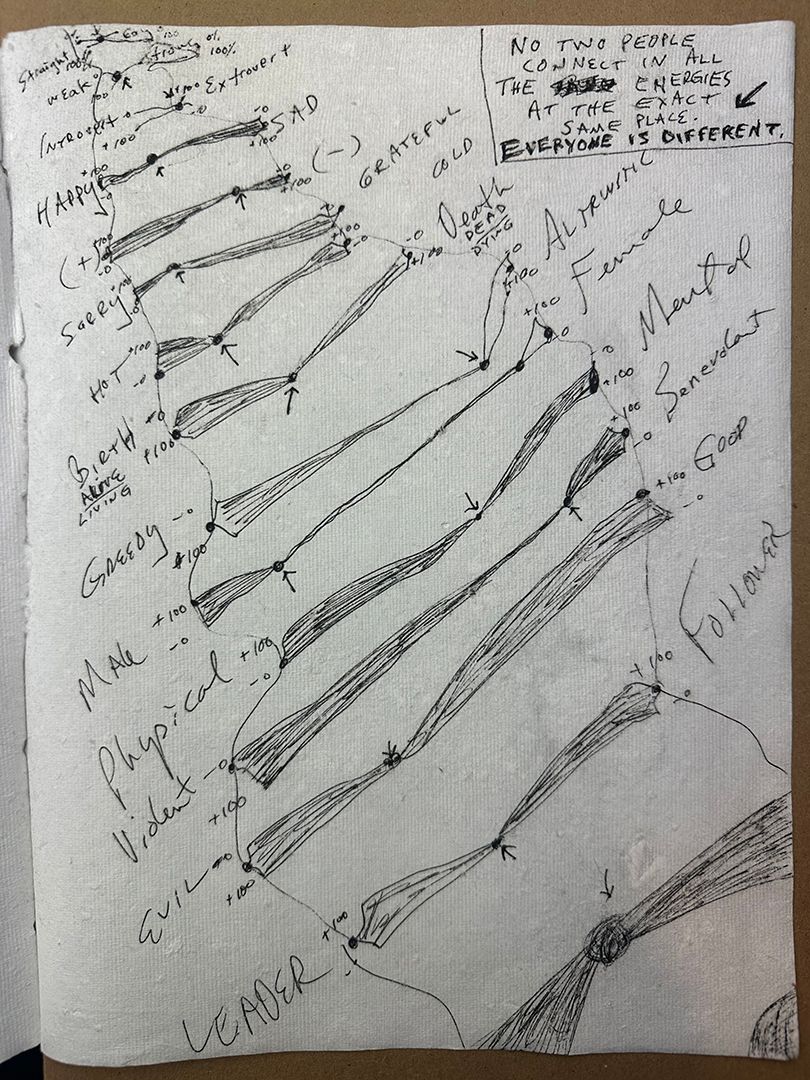 NO TWO PEOPLE
CONNECT IN ALL
THE ENERGIES
AT THE EXACT
SAME PLACE.
EVERYONE IS DIFFERENT.
Straight
Gay
100%
0%
100%
weak
100
INTROVERT
+100
-0
+100
Extrovert
HAPPY
+100
-0
-0
+100
SAD
(+)
+100
-0
-0
+100
(-)
SORRY
GRATEFUL
HOT
+100
-0
+100
-0
COLD
BIRTH
ALIVE
LIVING
-0
+100
-0
+100
Death
DEAD
DYING
GREEDY
-0
+100
-0
+100
ALTRUISTIC
MALE
+100
-0
+100
-0
Female
Physical
+100
-0
-0
+100
Mental
Violent
-0
+100
+100
-0
Benevolent
EVIL
-0
+100
+100
-0
GOOD
LEADER
+100
+100
-0
FOLLOWER